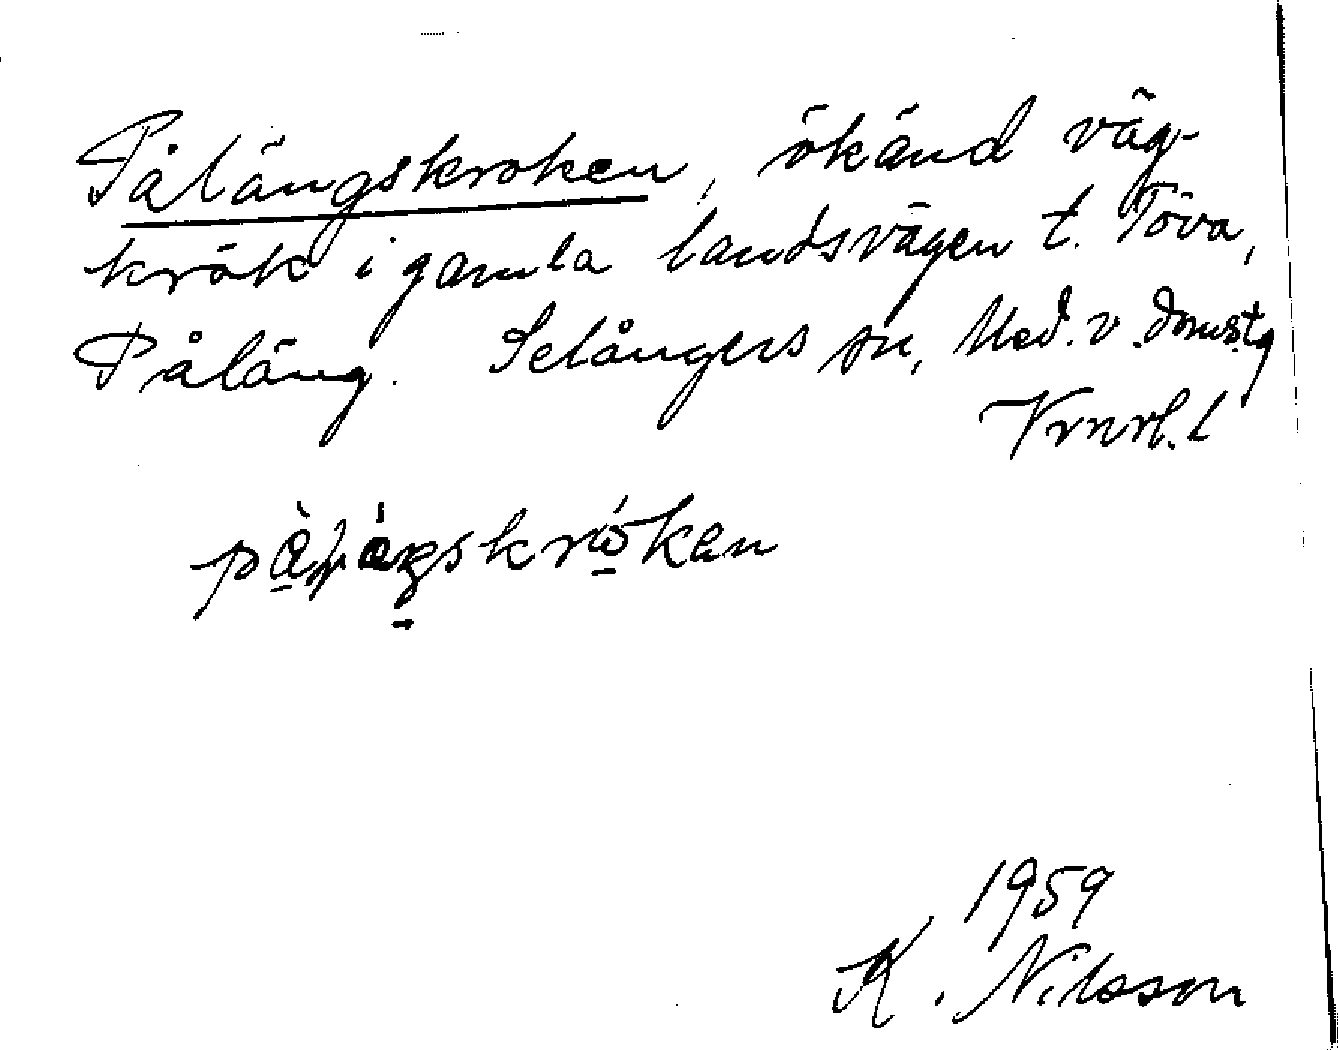 Pålängskroken, ökänd väg-
krök i gamla landsvägen t. Töva,
Påläng. Selångers sn, Med. v. domsg
Vrnrl. L
1959
K. Nilsson